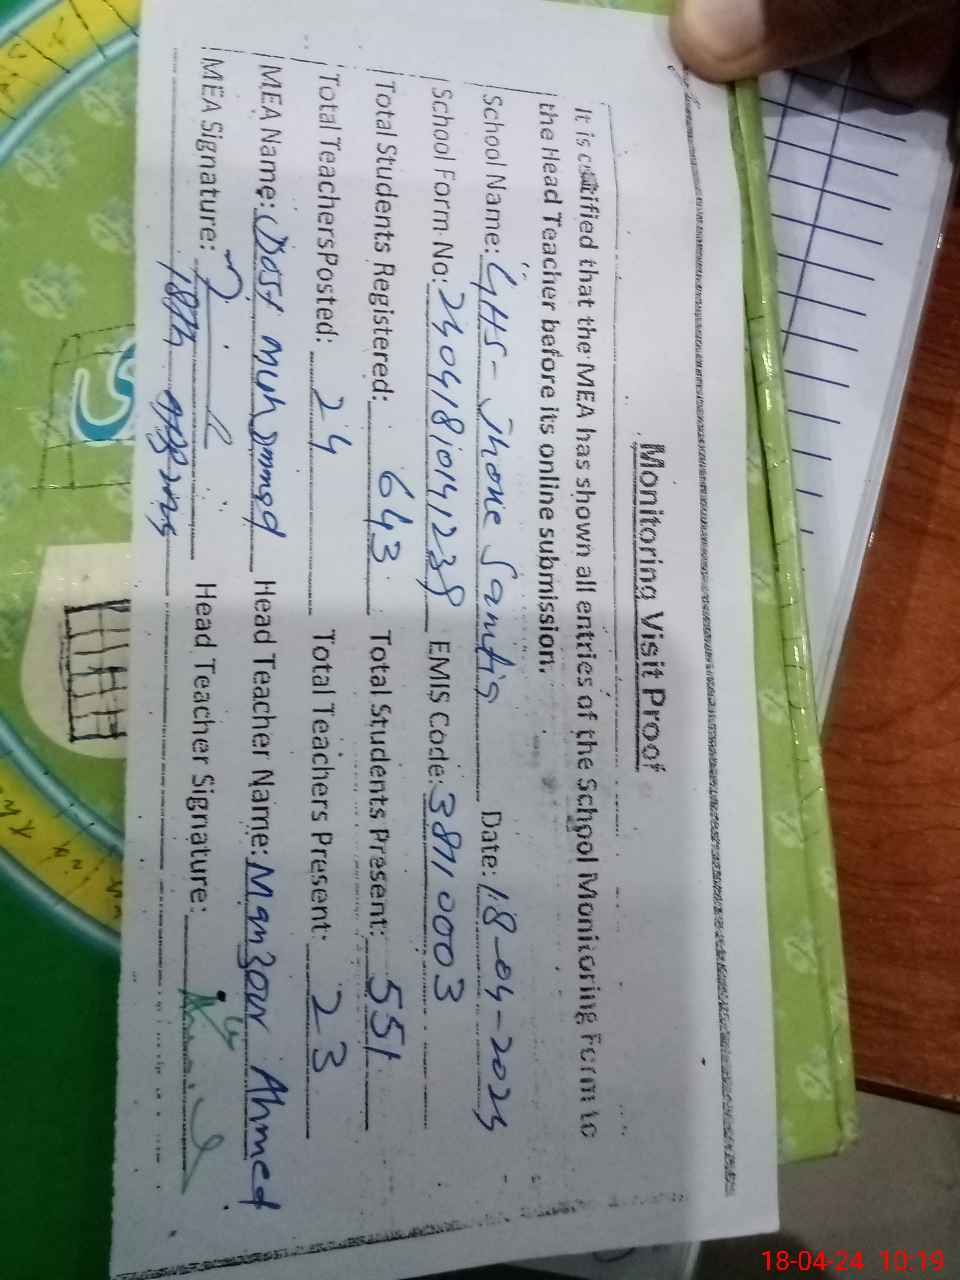 Monitoring Visit Proof
It is certified that the MEA has shown all entries of the School Monitoring Form to
the Head Teacher before its online submission.
School Name: GHS- Jhone Date: 18-04-2024
School Form No: EMIS Code: 38710003
Total Students Registered: 643 Total Students Present: 551
Total TeachersPosted: 24 Total Teachers Present: 23
MEA Name: Dost Muhammad Head Teacher Name: Manzour Ahmed
MEA Signature: Head Teacher Signature:
18-04-24 10:19